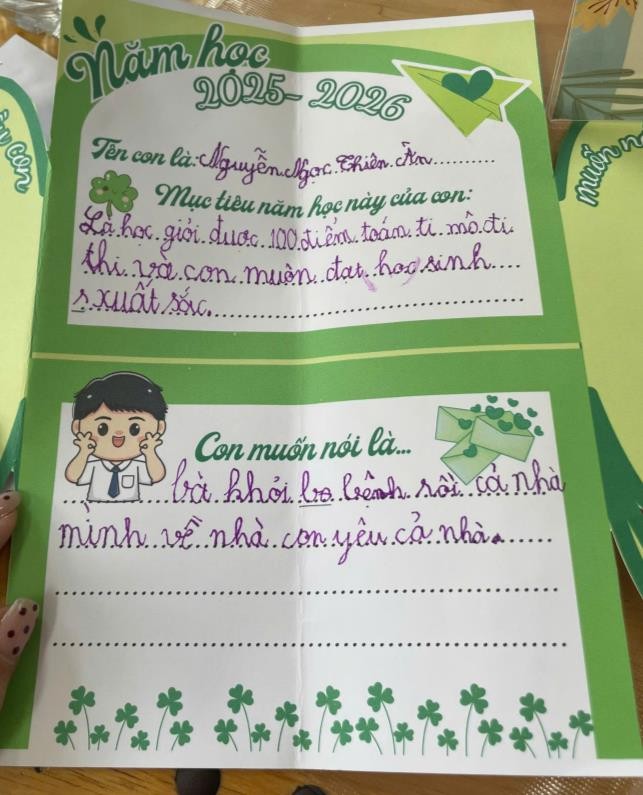 Năm học
2025-2026
Tên con là: Nguyễn Ngọc Thiên Ân
Mục tiêu năm học này của con:
Là học giỏi được 100 điểm toán ti mô đi
thi và con muốn đạt học sinh
s xuất sắc.
Con muốn nói là...
bà khỏi bo bệnh rồi cả nhà
mình về nhà con yêu cả nhà.
muốn n